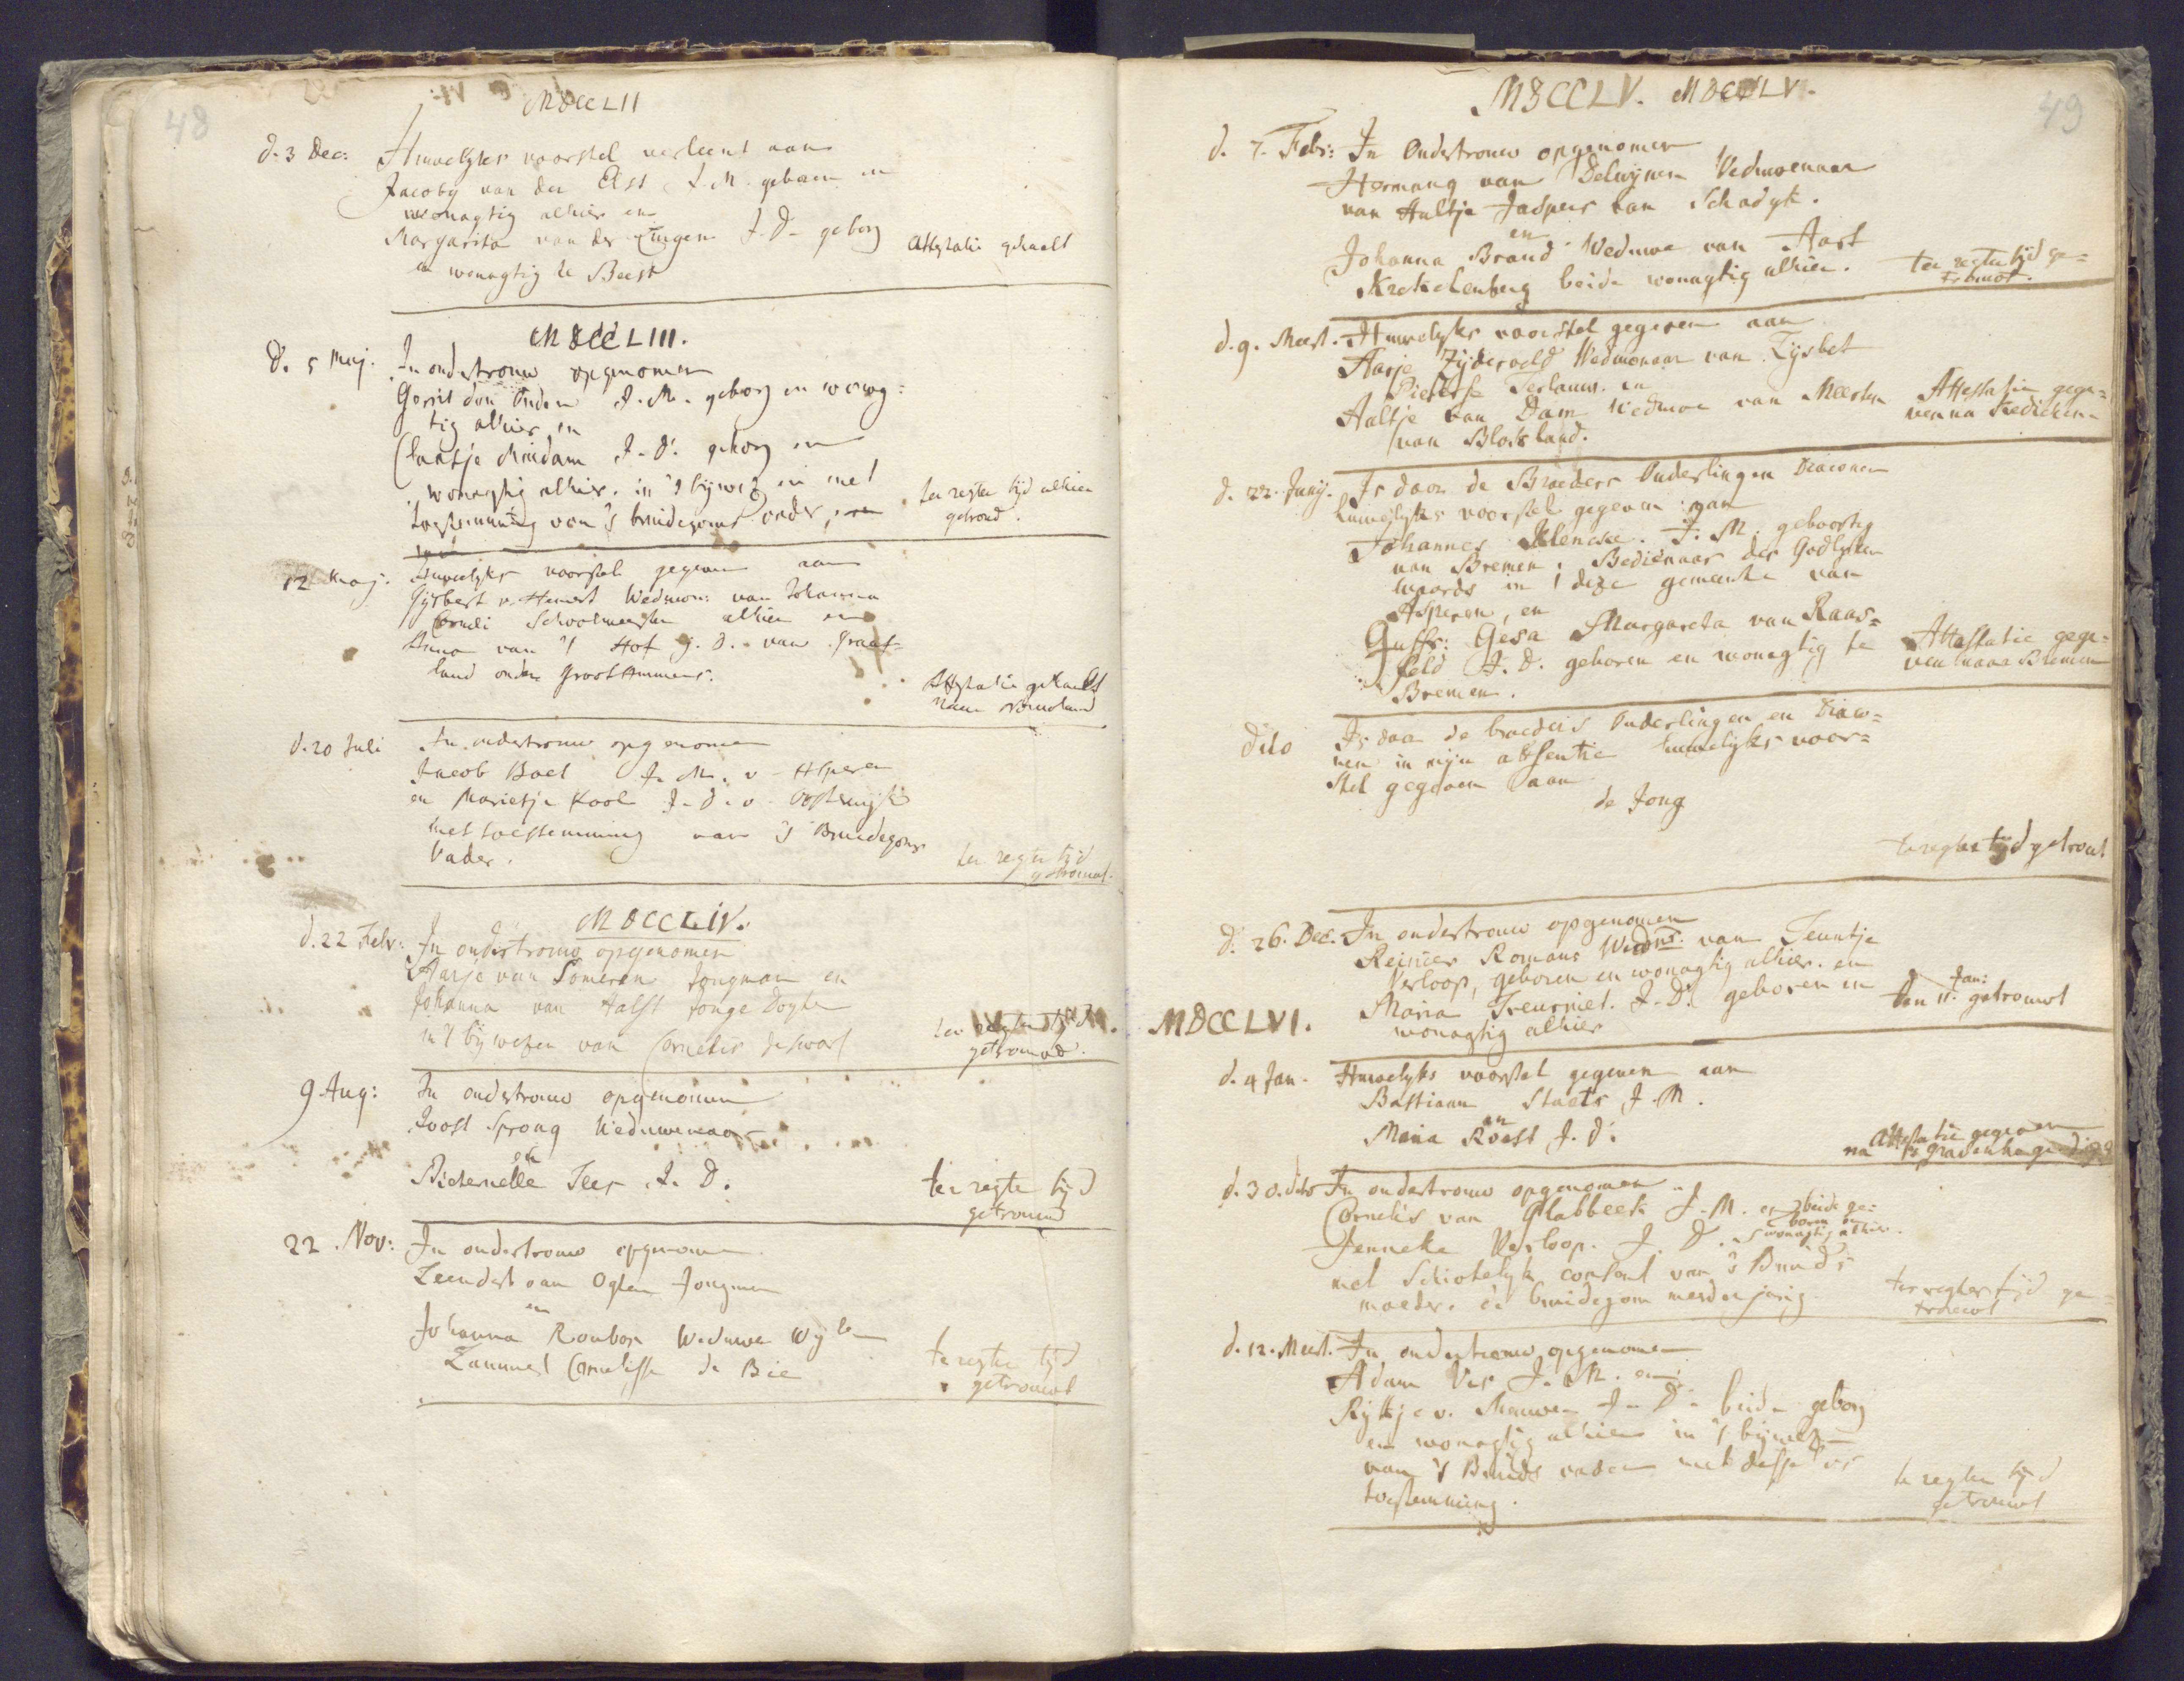 48
MDCCLII
d. 3 Dec: Huwelyks voorstel verleent aan
Jacoby van der Elst J.M. geboren en
woonagtig alhier en
Margarita van der Lingen J.D. geborg
en wonagtig te Beest
Attestatie gehaelt
MDCCLIII.
d. 5 Maj. In ondertrouw opgenomen
Gerrit den Ouden J.M. geborg en wonag:
tig alhier en
Claasje Muidam J.D. geborg en
wonagtig alhier. in 't bijwez en met
toestemming van 's bruidegoms vader,
ter regter tijd alhier
getroud.
12 Maj. Huwelyks voorstel gegeven aan
Gijsbert v. Hemert Weduwn: van Johanna
Corneli Schoolmeester alhier en
Anna van 't Hof J.D. van Graaf-
land onder Groot Ammers.
Attestatie gehaelt
naar
d. 20 Juli In ondertrouw opgenomen
Jacob Boel J.M. v. Asperen
en Marietje Kool J.D. v. Oosterwijk
met toestemming van 's Bruidegoms
Vader.
ter regter tijd
getrouwt.
MDCCLIV.
d. 22 Febr: In ondertrouw opgenomen
Aarje van Someren Jongman en
Johanna van Aalst Jonge Dogter
in 't bijwesen van Cornelis de Swart
ter regter tijd
getrouwd.
9 Aug: In ondertrouw opgenomen
Joost Sprong Weduwenaar
en
Pieternelle Teer J.D.
ter regte tijd
getrouwd
22. Nov: In ondertrouw opgenomen
Leendert van Ogten Jongman
en
Johanna Roubos Weduwe Wyle
Lammert Cornelisse de Bie
te regte tijd
getrouwt
49
MDCCLV. MDCCLV.
d. 7. Febr: In Ondertrouw opgenomen
Hermang van Delwijnen Weduwenaar
van Aaltje Jaspers van Schadyk.
en
Johanna Brand Weduwe van Aart
Krekelenberg beide wonagtig alhier.
ter regter tijd ge=
trouwt.
d. 9. Meert. Huwelyks voorstel gegeven aan
Aarje Zijderveld Weduwenaar van Lijsbet
Pieterse Terlauw. en
Aaltje van Dam Weduwe van Meerten
van Bloisland.
Attestatie gege=
ven na Kedichem
d. 22. Junij. Is door de Broeders Ouderlingen Diaconen
huwelyks voorstel gegeven aan
Johannes Klencke. J.M. geboortig
van Bremen, Bedienaar des Godlyken
woords in deze gemeente van
Asperen, en
Juffr: Gesa Margareta van Raas=
feld J.D. geboren en wonagtig te
Bremen.
Attestatie gege-
ven naar Bremen
dito Is door de broeders Ouderlingen en Diaco=
nen in mijn absentie huwelijks voor=
stel gegeven aan
de Jong
te regter tijd getrout
d. 26. Dec. In ondertrouw opgenomen
Reinier Romans Weduwnr. van Teuntje
Verloop, geboren en wonagtig alhier. en
Maria Treurniet. J.D. geboren en
wonagtig alhier
Jan:
den 11. getrouwt
MDCCLVI.
d. 4 Jan. Huwelyks voorstel gegeven aan
Bastiaan Staets J.M.
en
Maria Roest J.D.
Attestatie gegeven
na 's Gravenhage
d. 30. dito In ondertrouw opgenomen
Cornelis van Glabbeek J.M. en beide ge=
boren en
Jenneke Verloop. J.D. wonagtig alhier.
met Schiotelyk consent van 's Bruids
moeder. de bruidegom meerderjarig
ter regter tijd ge=
trouwt
d. 12. Meert. In ondertrouw opgenomen
Adam Vos J.M. en
Rijkje v. Meuwen J.D. beide geborg
en wonagtig alhier in 't bijwez
van 's Bruids vader met desselvs
toestemming.
te regter tijd
getrouwt